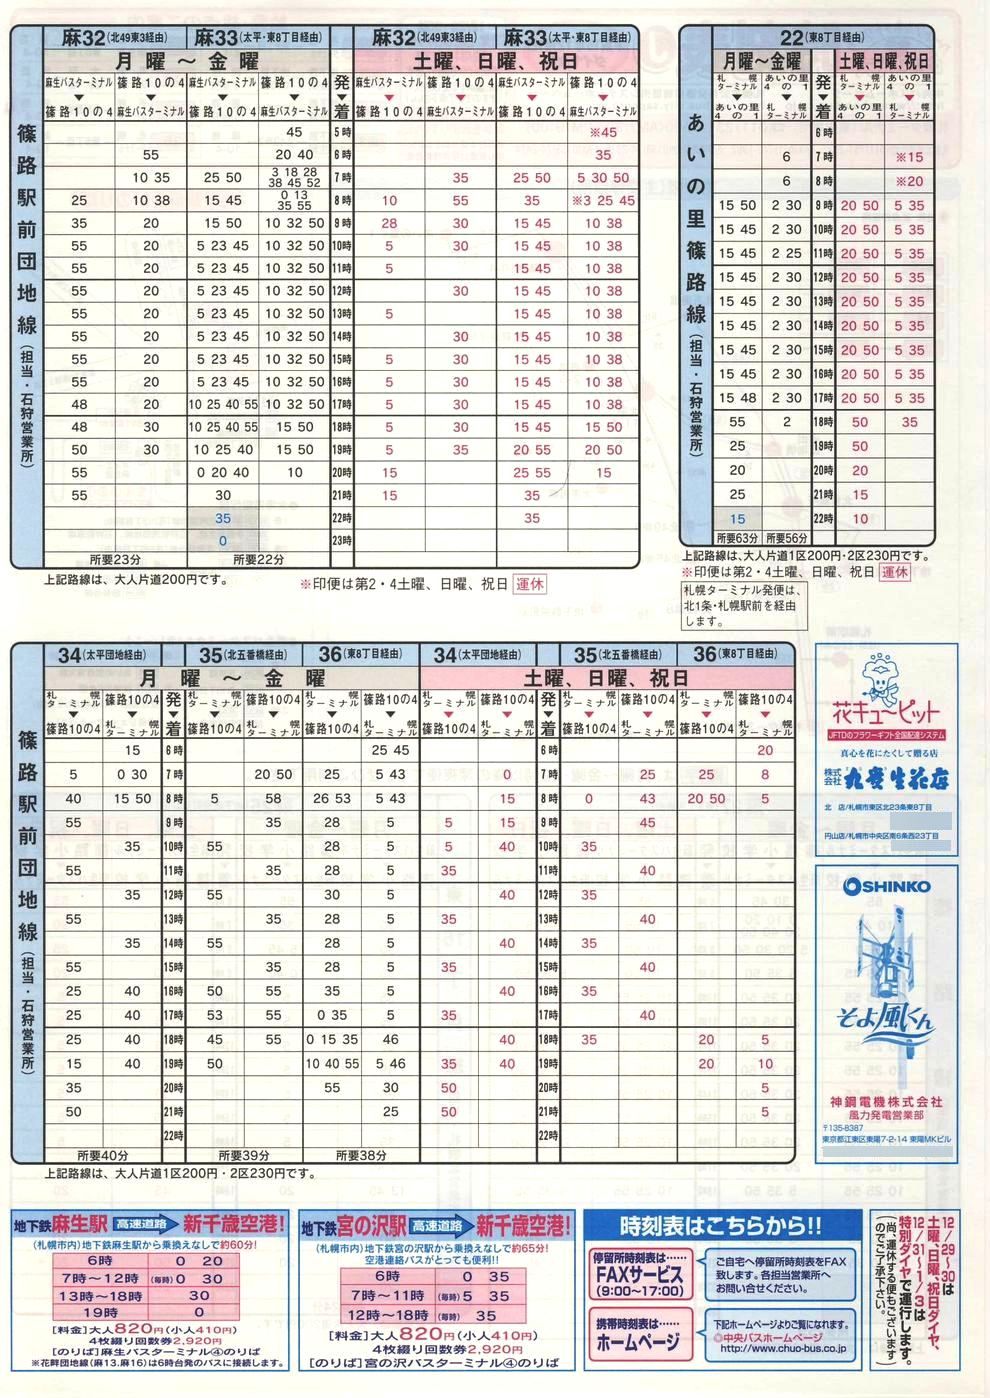 麻32(北49東3経由) 麻33(太平・東8丁目経由) 麻32(北49東3経由) 麻33(太平・東8丁目経由)
月曜～金曜 土曜、日曜、祝日
麻生バスターミナル▼篠路10の4 篠路10の4▼麻生バスターミナル 麻生バスターミナル▼篠路10の4 篠路10の4▼麻生バスターミナル 発▼着 麻生バスターミナル▼篠路10の4 篠路10の4▼麻生バスターミナル 麻生バスターミナル▼篠路10の4 篠路10の4▼麻生バスターミナル
篠路駅前団地線(担当・石狩営業所)
45 5時 ※45
55 20 40 6時 35
10 35 25 50 3 18 28 38 45 52 7時 35 25 50 5 30 50
25 10 38 15 45 0 13 35 55 8時 10 55 35 ※3 25 45
35 20 15 50 10 32 50 9時 28 30 15 45 10 38
55 20 5 23 45 10 32 50 10時 5 30 15 45 10 38
55 20 5 23 45 10 32 50 11時 5 15 45 10 38
55 20 5 23 45 10 32 50 12時 30 15 45 10 38
55 20 5 23 45 10 32 50 13時 5 15 45 10 38
55 20 5 23 45 10 32 50 14時 30 15 45 10 38
55 20 5 23 45 10 32 50 15時 5 30 15 45 10 38
55 20 5 23 45 10 32 50 16時 5 30 15 45 10 38
48 20 10 25 40 55 10 32 50 17時 5 30 15 45 10 38
48 30 10 25 40 55 15 50 18時 5 30 15 45 15 50
50 30 10 25 40 15 50 19時 5 35 20 55 20 50
55 0 20 40 10 20時 15 25 55 15
55 30 21時 15 35
35 22時 35
0 23時
所要23分 所要22分
上記路線は、大人片道200円です。
※印便は第2・4土曜、日曜、祝日 運休
22(東8丁目経由)
月曜～金曜 土曜、日曜、祝日
札幌ターミナル▼あいの里4の1 あいの里4の1▼札幌ターミナル 発▼着 札幌ターミナル▼あいの里4の1 あいの里4の1▼札幌ターミナル
あいの里篠路線(担当・石狩営業所)
6時
6 7時 ※15
6 8時 ※20
15 50 2 30 9時 20 50 5 35
15 45 2 30 10時 20 50 5 35
15 45 2 25 11時 20 50 5 35
15 45 2 30 12時 20 50 5 35
15 45 2 30 13時 20 50 5 35
15 45 2 30 14時 20 50 5 35
15 45 2 30 15時 20 50 5 35
15 45 2 30 16時 20 50 5 35
15 48 2 30 17時 20 50 5 35
55 2 18時 50 35
25 19時 50
20 20時 20
25 21時 15
15 22時 10
所要63分 所要56分
上記路線は、大人片道1区200円・2区230円です。
※印便は第2・4土曜、日曜、祝日 運休
札幌ターミナル発便は、
北1条・札幌駅前を経由
します。
34(太平団地経由) 35(北五番橋経由) 36(東8丁目経由) 34(太平団地経由) 35(北五番橋経由) 36(東8丁目経由)
月曜～金曜 土曜、日曜、祝日
札幌ターミナル▼篠路10の4 篠路10の4▼札幌ターミナル 発▼着 札幌ターミナル▼篠路10の4 篠路10の4▼札幌ターミナル 札幌ターミナル▼篠路10の4 篠路10の4▼札幌ターミナル 札幌ターミナル▼篠路10の4 篠路10の4▼札幌ターミナル 発▼着 札幌ターミナル▼篠路10の4 篠路10の4▼札幌ターミナル 札幌ターミナル▼篠路10の4 篠路10の4▼札幌ターミナル
篠路駅前団地線(担当・石狩営業所)
15 6時 25 45 6時 20
5 0 30 7時 20 50 25 5 43 0 7時 25 25 8
40 15 50 8時 5 58 26 53 5 43 15 8時 0 43 20 50 5
55 9時 35 28 5 5 15 9時 45
35 10時 55 28 5 5 40 10時 35
55 11時 35 28 5 11時 40
35 12時 55 30 5 40 12時 35
55 13時 35 28 5 35 13時 40
35 14時 55 28 5 40 14時 35
55 15時 35 28 5 35 15時 40
25 40 16時 50 35 35 5 40 16時 35
25 40 17時 53 55 0 35 5 35 17時 40
25 40 18時 45 55 0 15 35 46 40 18時 35 20 5
15 40 19時 50 10 40 55 5 46 35 40 19時 20 10
35 20時 55 30 50 20時 5
50 21時 25 50 21時 5
22時 22時
所要40分 所要39分 所要38分
上記路線は、大人片道1区200円・2区230円です。
花キューピット
JFTDのフラワーギフト全国配達システム
真心を花にたくして贈る店
株式会社 丸慶生花店
北 店/札幌市東区北23条東8丁目
円山店/札幌市中央区南6条西23丁目
SHINKO
そよ風くん
神鋼電機株式会社
風力発電営業部
〒135-8387
東京都江東区東陽7-2-14 東陽MKビル
地下鉄麻生駅 高速道路 新千歳空港!
(札幌市内)地下鉄麻生駅から乗換えなしで約60分!
6時 0 20
7時～12時 (毎時) 0 30
13時～18時 30
19時 0
[料金]大人820円(小人410円)
4枚綴り回数券2,920円
[のりば]麻生バスターミナル④のりば
※花畔団地線(麻13.麻16)は6時台発のバスに接続します。
地下鉄宮の沢駅 高速道路 新千歳空港!
(札幌市内)地下鉄宮の沢駅から乗換えなしで約65分!
空港連絡バスがとっても便利!!
6時 0 35
7時～11時 (毎時) 5 35
12時～18時 (毎時) 35
[料金]大人820円(小人410円)
4枚綴り回数券2,920円
[のりば]宮の沢バスターミナル④のりば
時刻表はこちらから!!
停留所時刻表は……
FAXサービス
(9:00～17:00)
ご自宅へ停留所時刻表をFAX
致します。各担当営業所へ
お問い合せください。
携帯時刻表は……
ホームページ
下記ホームページよりご覧になれます。
◎中央バスホームページ
http://www.chuo-bus.co.jp
12/29～30は
土曜、日曜、祝日ダイヤ、
12/31～1/3は
特別ダイヤで運行します。
(尚、運休する便もございます
のでご了承下さい。)